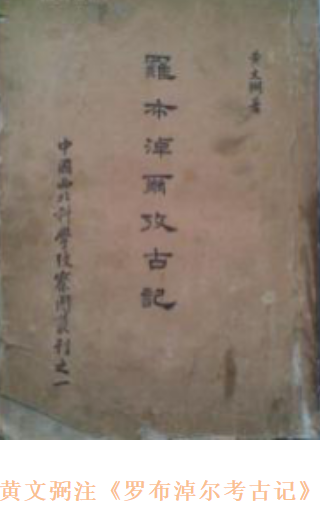 黄文弼著
羅布淖爾攷古記
中國西北科學考察團叢刊之一
黄文弼注《罗布淖尔考古记》